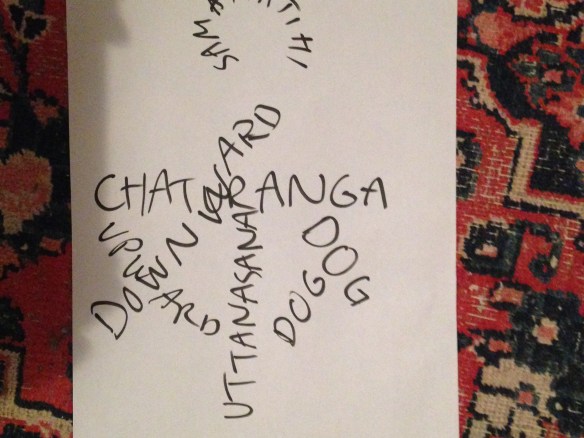 CHATURANGA
DOWNWARD
DOG
UPWARD
DOG
UTTANASANA